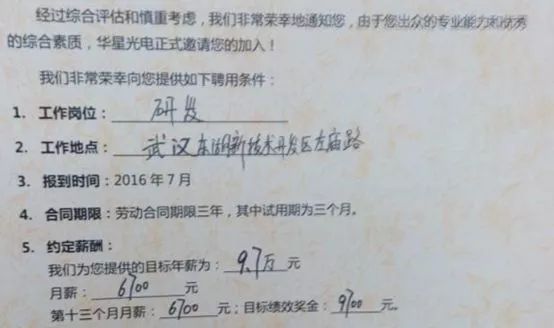 经过综合评估和慎重考虑，我们非常荣幸地通知您，由于您出众的专业能力和优秀
的综合素质，华星光电正式邀请您的加入！
我们非常荣幸向您提供如下聘用条件：
1. 工作岗位：研发
2. 工作地点：武汉东湖新技术开发区左庙路
3. 报到时间：2016年7月
4. 合同期限：劳动合同期限三年，其中试用期为三个月。
5. 约定薪酬：
我们为您提供的目标年薪为：9.7万元
月薪：6700元
第十三个月月薪：6700元；目标绩效奖金：9700元。